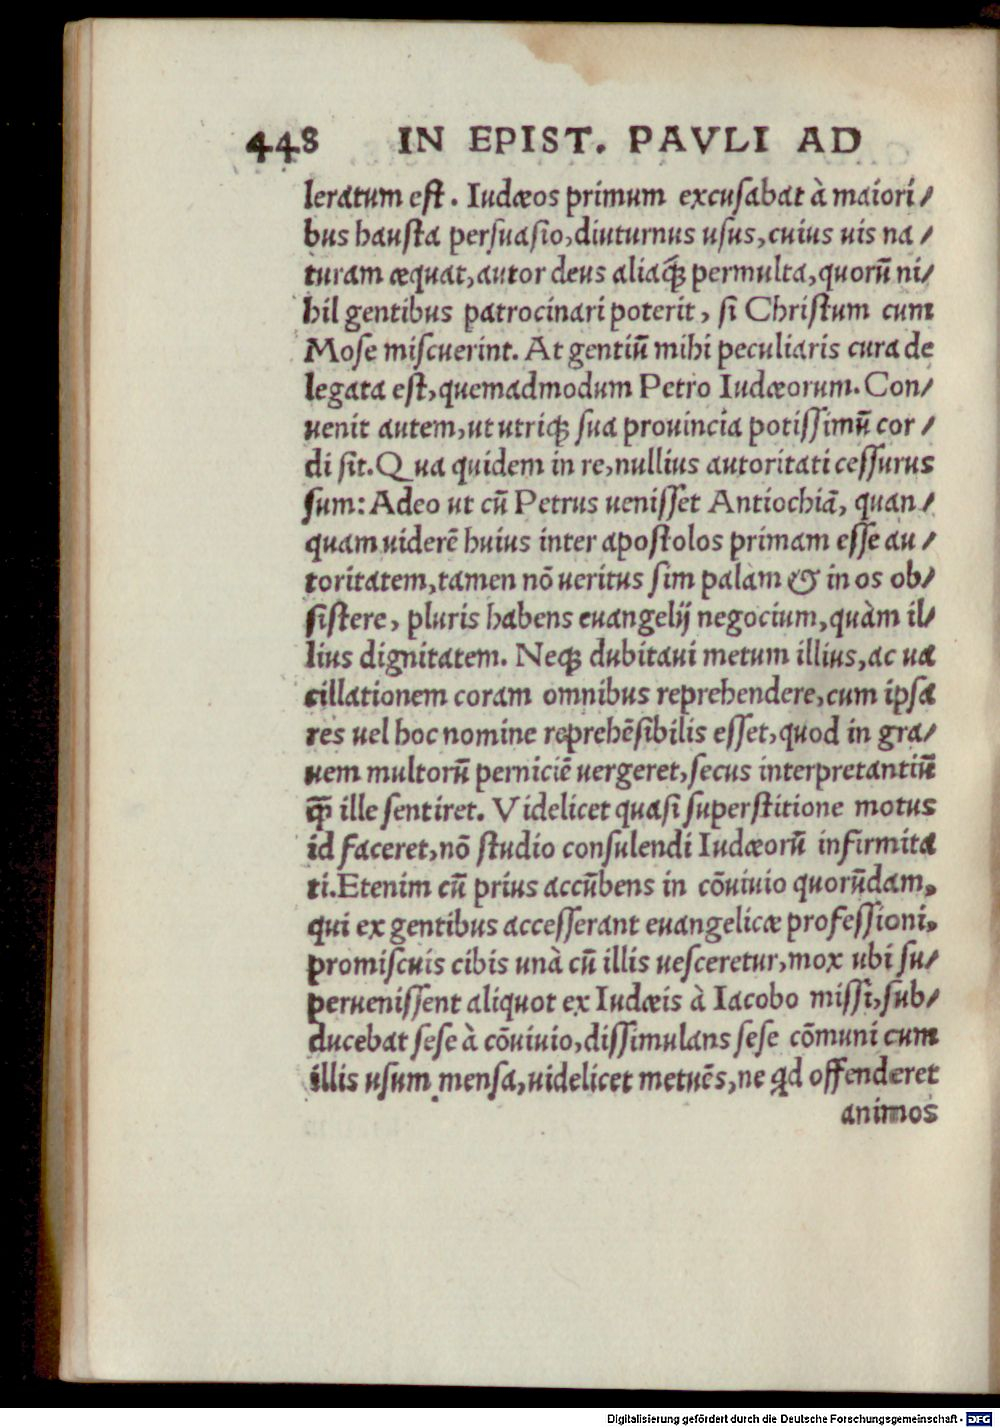 448 IN EPIST. PAVLI AD
leratum est. Iudæos primum excusabat à maiori/
bus hausta persuasio, diuturnus usus, cuius uis na/
turam æquat, autor deus aliaq́; permulta, quorũ ni/
hil gentibus patrocinari poterit, si Christum cum
Mose miscuerint. At gentiũ mihi peculiaris cura de
legata est, quemadmodum Petro Iudæorum. Con/
uenit autem, ut utriq; sua prouincia potissimũ cor/
di sit. Qua quidem in re, nullius autoritati cessurus
sum: Adeo ut cũ Petrus uenisset Antiochiã, quan/
quam uiderẽ huius inter apostolos primam esse au/
toritatem, tamen nõ ueritus sim palàm & in os ob/
sistere, pluris habens euangelij negocium, quàm il/
lius dignitatem. Neq; dubitaui metum illius, ac ua
cillationem coram omnibus reprehendere, cum ipsa
res uel hoc nomine reprehẽsibilis esset, quod in gra/
uem multorũ perniciẽ uergeret, secus interpretantiũ
q̃ ille sentiret. Videlicet quasi superstitione motus
id faceret, nõ studio consulendi Iudæorũ infirmita
ti. Etenim cũ prius accũbens in cõuiuio quorũdam,
qui ex gentibus accesserant euangelicæ professioni,
promiscuis cibis unà cũ illis uesceretur, mox ubi su/
peruenissent aliquot ex Iudæis à Iacobo missi, sub/
ducebat sese à cõuiuio, dissimulans sese cõmuni cum
illis usum mensa, uidelicet metuẽs, ne qd offenderet
animos
Digitalisierung gefördert durch die Deutsche Forschungsgemeinschaft - DFG